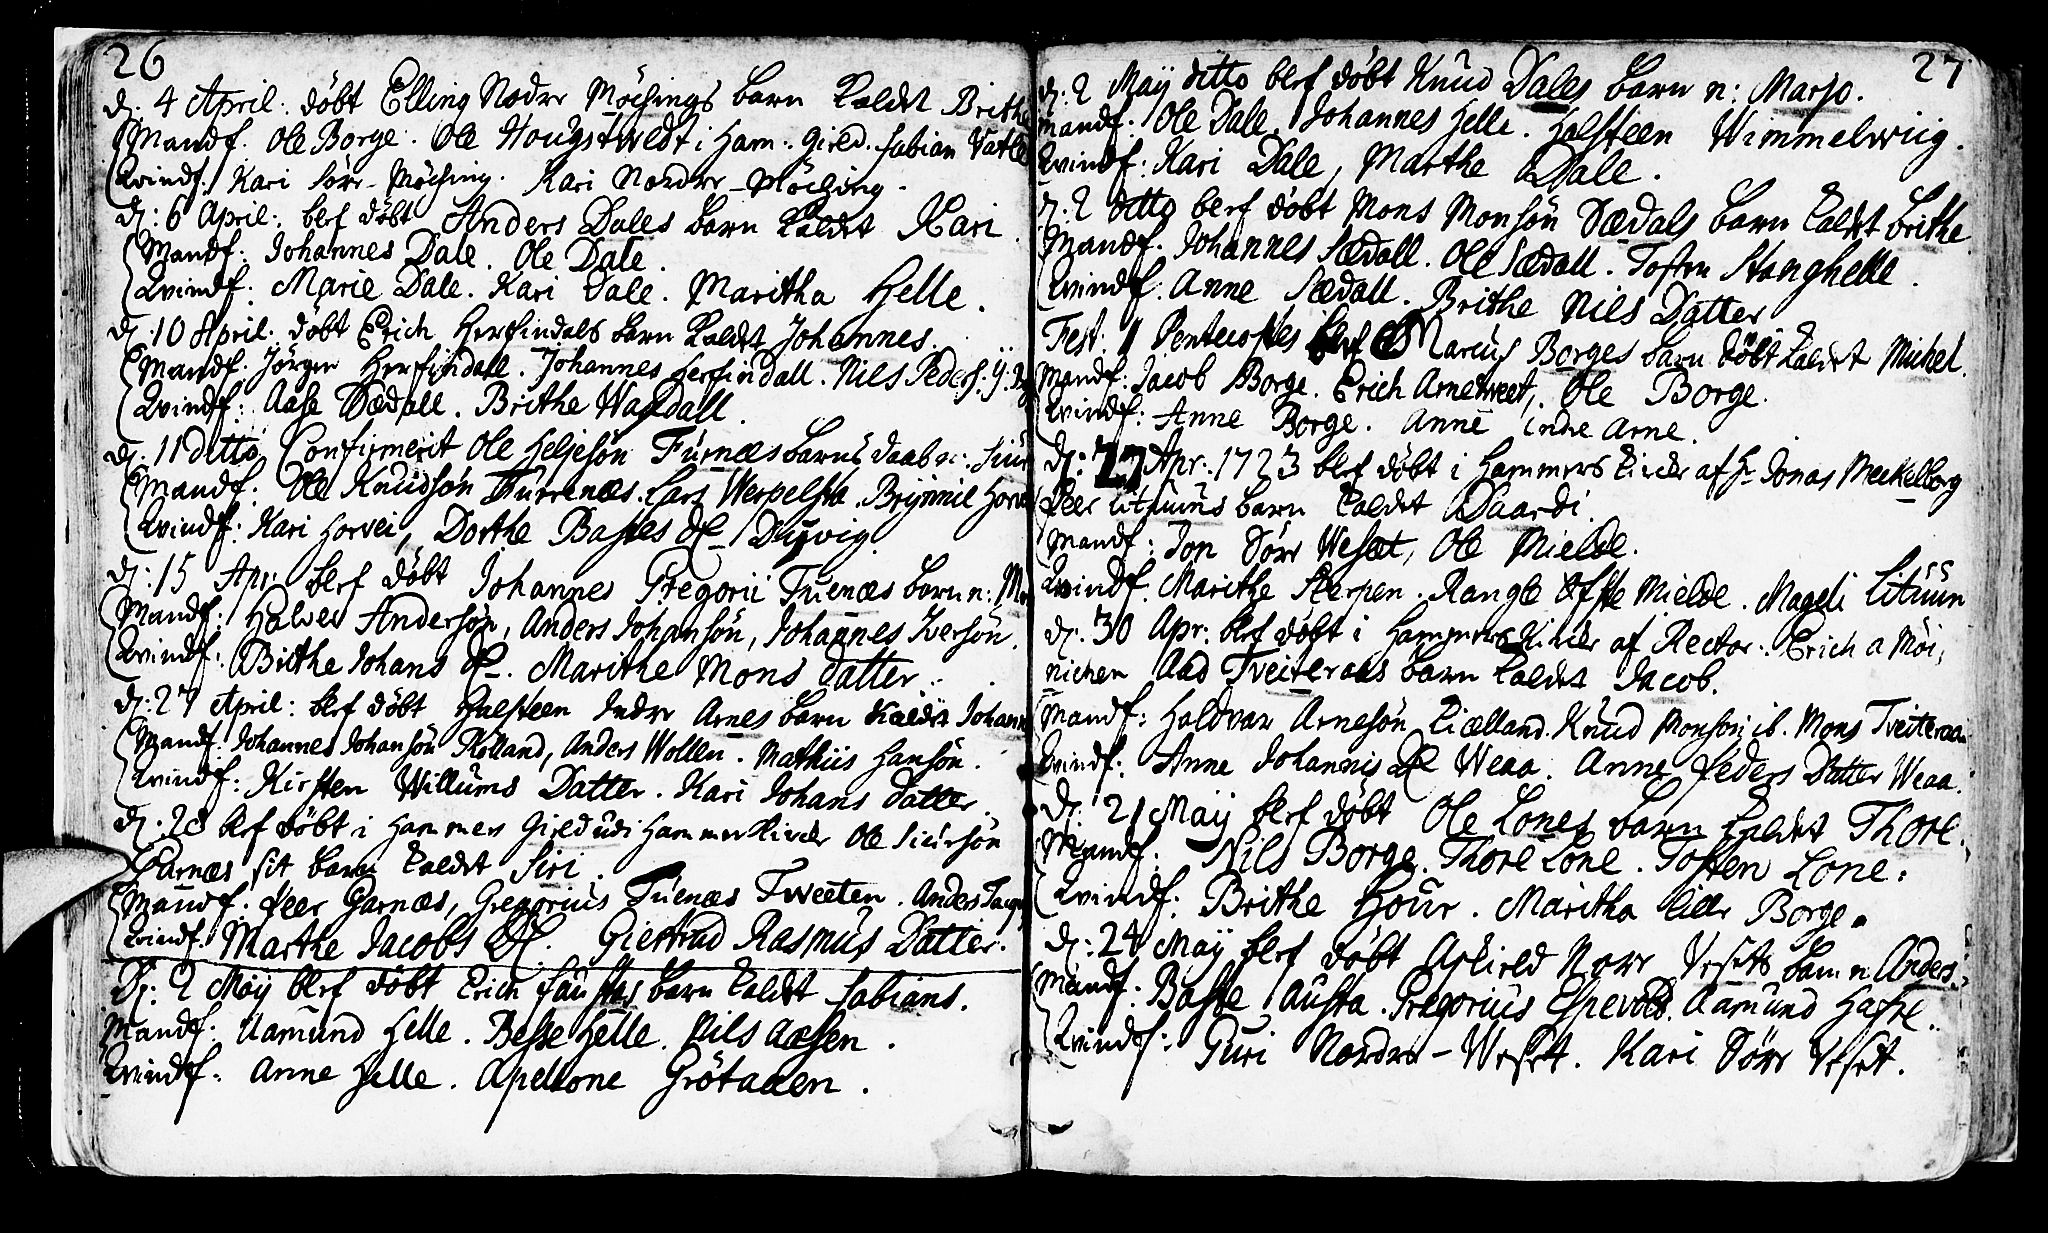 26
d: 4 April: döbt Elling Nodre Möchings barn kaldet Brithe
Mandf. Ole Borge. Ole Hougstvedt i Ham: Gield. Fabian Vatle
Qvindf: Kari Sörr-Möching. Kari Nordre-Möching.
d: 6 April: blef döbt Anders Dales barn kaldet Kari.
Mandf: Johannes Dale. Ole Dale.
Qvindf: Marie Dale. Kari Dale. Maritha Helle.
d. 10 April. döbt Erich Herfindals barn kaldet Johannes.
Mandf. Jörgen Herfindall. Johannes Herfindall. Nils Peders:
Qvindf: Aase Dædall. Brithe Wasdall.
d. 11 ditto Confirmerit Ole Heljesön Furnæs barns daab n:
Mandf: Ole Knudsön Furrenæs. Lars Werpelsta. Brynnild
Qvindf: Kari Horvei, Dorthe Basses D: Dugvig.
d: 15 Apr: blef döbt Johannes Gregorii Tuenæs barn n:
Mandf: Halver Andersön, Anders Johansön, Johannes Iversön.
Qvindf: Brithe Johans D: Marithe Mons datter.
d: 27 April: blef döbt Halsteen Indre Arnes barn kaldet Johann
Mandf. Johannes Johansön Rölland, Anders Wollen. Mathiis Hansön.
Qvindf: Kirsten Willums Datter. Kari Johans datter.
d. 28 blef döbt i Hammers Gield udi Hammer Kircke Ole Siursön
Garnæs sit barn kaldet Siri.
Mandf. Peer Garnæs, Gregorius Tuenæs Tweeten. Anders
Qvindf. Marthe Jacobs D: Giertrud Rasmus Datter.
D: 2 Maÿ blef döbt Erich Fauskes barn kaldet Fabians.
Mandf: Aamund Helle. Besse Helle. Nils Aasen.
Qvindf: Anne Helle. Apellone Grötaaen.
27
d: 2 Maÿ ditto blef döbt Knud Dales barn n: Marjo.
Mandf: Ole Dale. Johannes Helle. Halsteen Wimmelwiig.
Qvindf: Kari Dale, Marthe Dale.
d: 2 ditto blef döbt Mons Monsön Sædals barn kaldet Brithe
Mandf. Johannes Sædall. Ole Sædall. Tosten Stanghelle.
Qvindf. Anne Sædall. Brithe Nils Datter
Fest: II Pentecostes blef Marcus Borges barn döbt kaldet Michel.
Mandf: Jacob Borge. Erich Arnetweet, Ole Borge.
Qvindf: Anne Borge. Anne indre Arne.
d: 27 Apr: 1723 blef döbt i Hammers Kircke af Hr Jonas Meckelborg
Peer Utuuns barn kaldet Daardi.
Mandf: Jon Sörr Weset, Ole Mielde.
Qvindf. Marithe Skerpen. Rangle Ofste Mielde. Mageli Utuun
d: 30 Apr: blef döbt i Hammers Kircke af Rector. Erich a Möi,
nichen Aad Tveiteraas barn kaldet Jacob.
Mandf: Haldvar Arnesön Kiælland. Knud Monsön ib. Mons Tveiteraa
Qvindf: Anne Johannis D: Weaa. Anne Peders Datter Weaa.
d: 21 Maÿ blef döbt Ole Lones barn kaldet Thore.
Mandf: Nils Borge. Thore Lone. Tosten Lone.
Qvindf: Brithe Hour. Maritha Lille Borge.
d: 24 Maÿ blef döbt Askield Norr Vesets barn n. Anders.
Mandf: Basse Austa. Gregorius Espevold. Aamund Hasre.
Qvindf: Guri Nordre-Weset. Kari Sörr Veset.